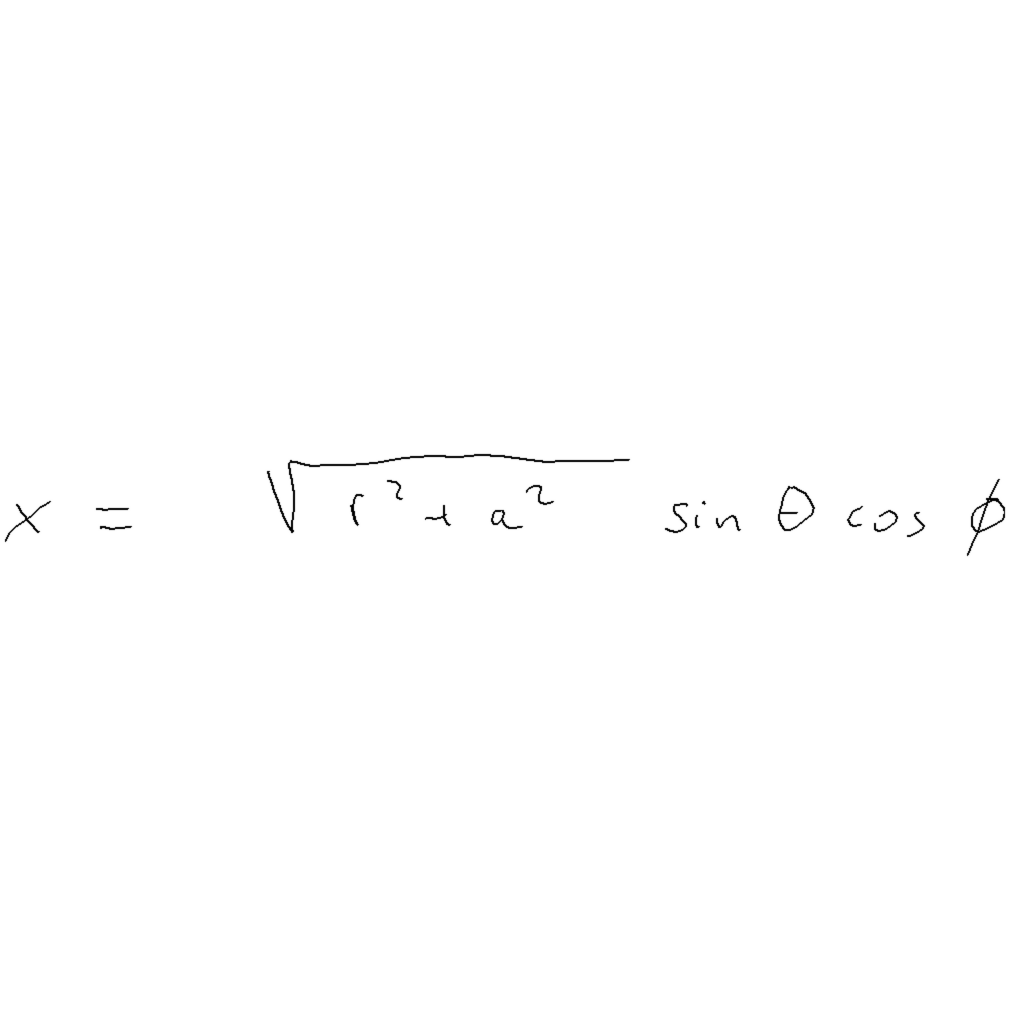 x = √(r² + a²) sin θ cos ϕ